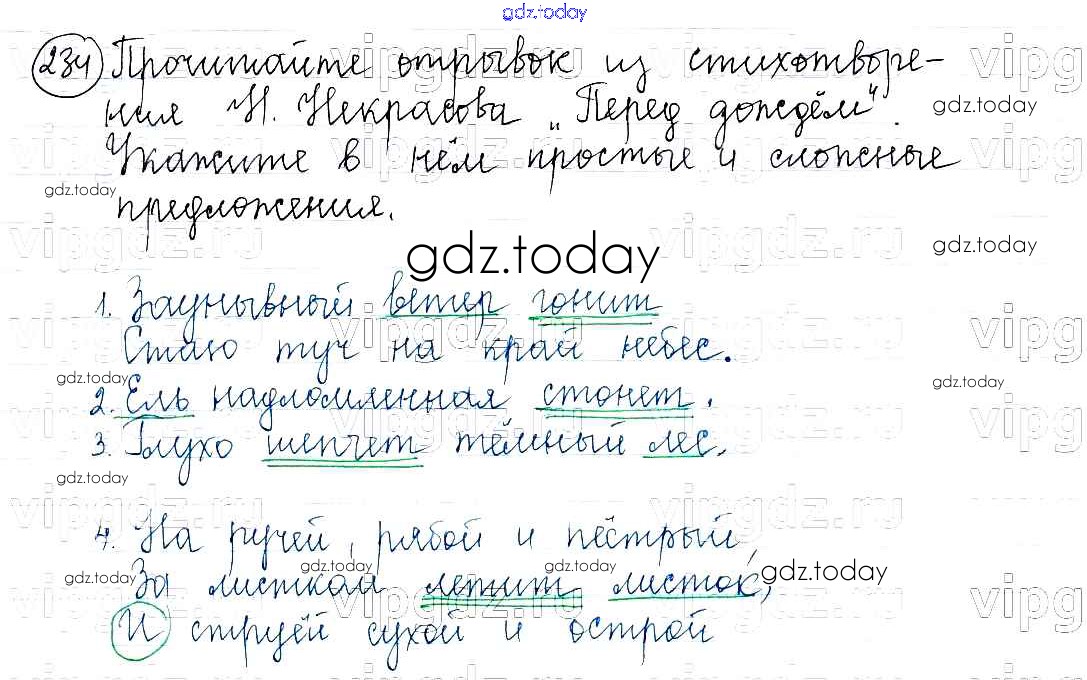 gdz.today
234 Прочитайте отрывок из стихотворе-
ния Н. Некрасова „Перед дождём“.
gdz.today
Укажите в нём простые и сложные
gdz.today
предложения.
vipgdz.ru
gdz.today
gdz.today
1. Заунывный ветер гонит
Стаю туч на край небес.
gdz.today
gdz.today
2. Ель надломленная стонет.
3. Глухо шепчет тёмный лес.
gdz.today
gdz.today
vipgdz.ru
4. На ручей, рябой и пёстрый,
За листком летит листок,
gdz.today
gdz.today
gdz.today
gdz.today
И струей сухой и острой